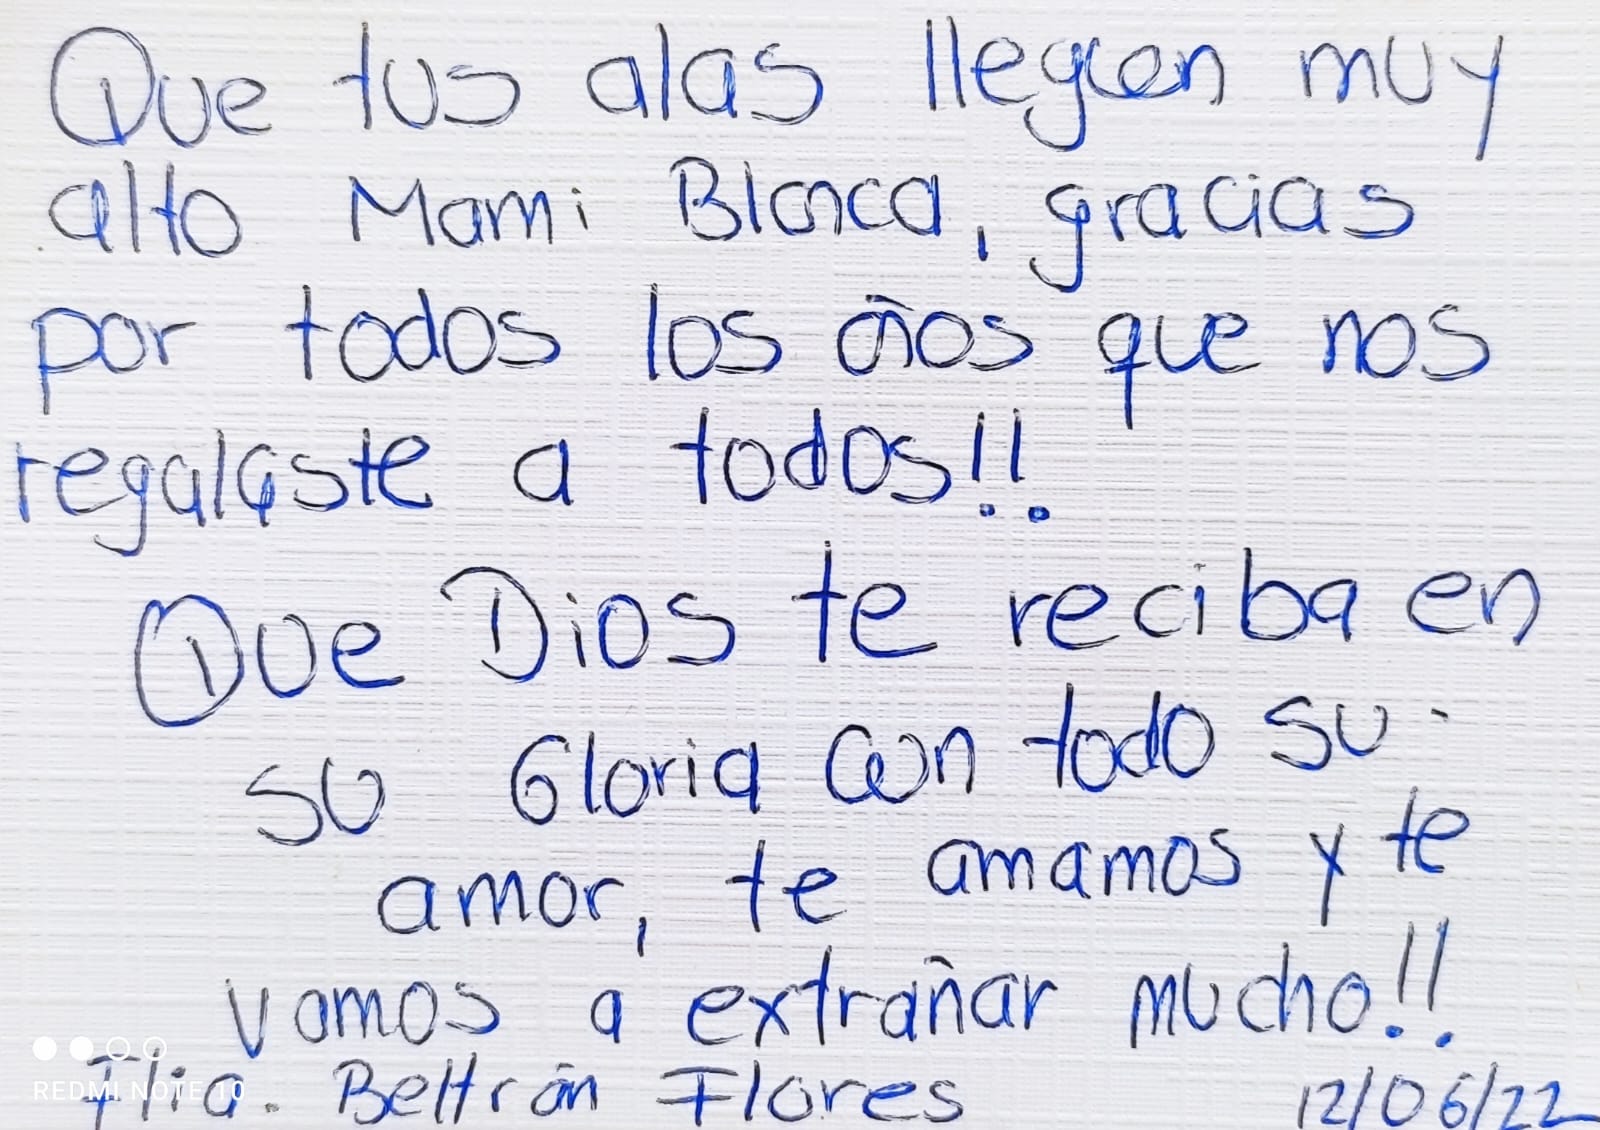 Que tus alas lleguen muy
alto Mami Blanca, gracias
por todos los años que nos
regalaste a todos!!
Que Dios te reciba en
su Gloria con todo su
amor, te amamos y te
vamos a extrañar mucho!!
Flia. Beltrán Flores 12/06/22
REDMI NOTE 10